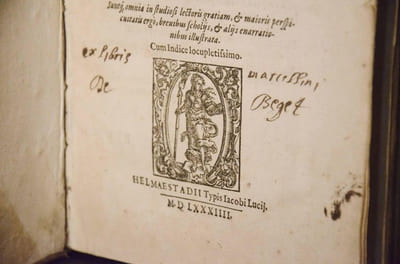 Suntq́;, omnia in ſtudioſi lectoris gratiam, & maioris perſpi-
cuitatis ergò, breuibus ſcholijs, & alijs enarratio-
nibus illuſtrata.
Cum Indice locupletiſſimo.
ex libris marcellini,
De
HELMAESTADII Typis Iacobi Lucij,
M D LXXXIIII.